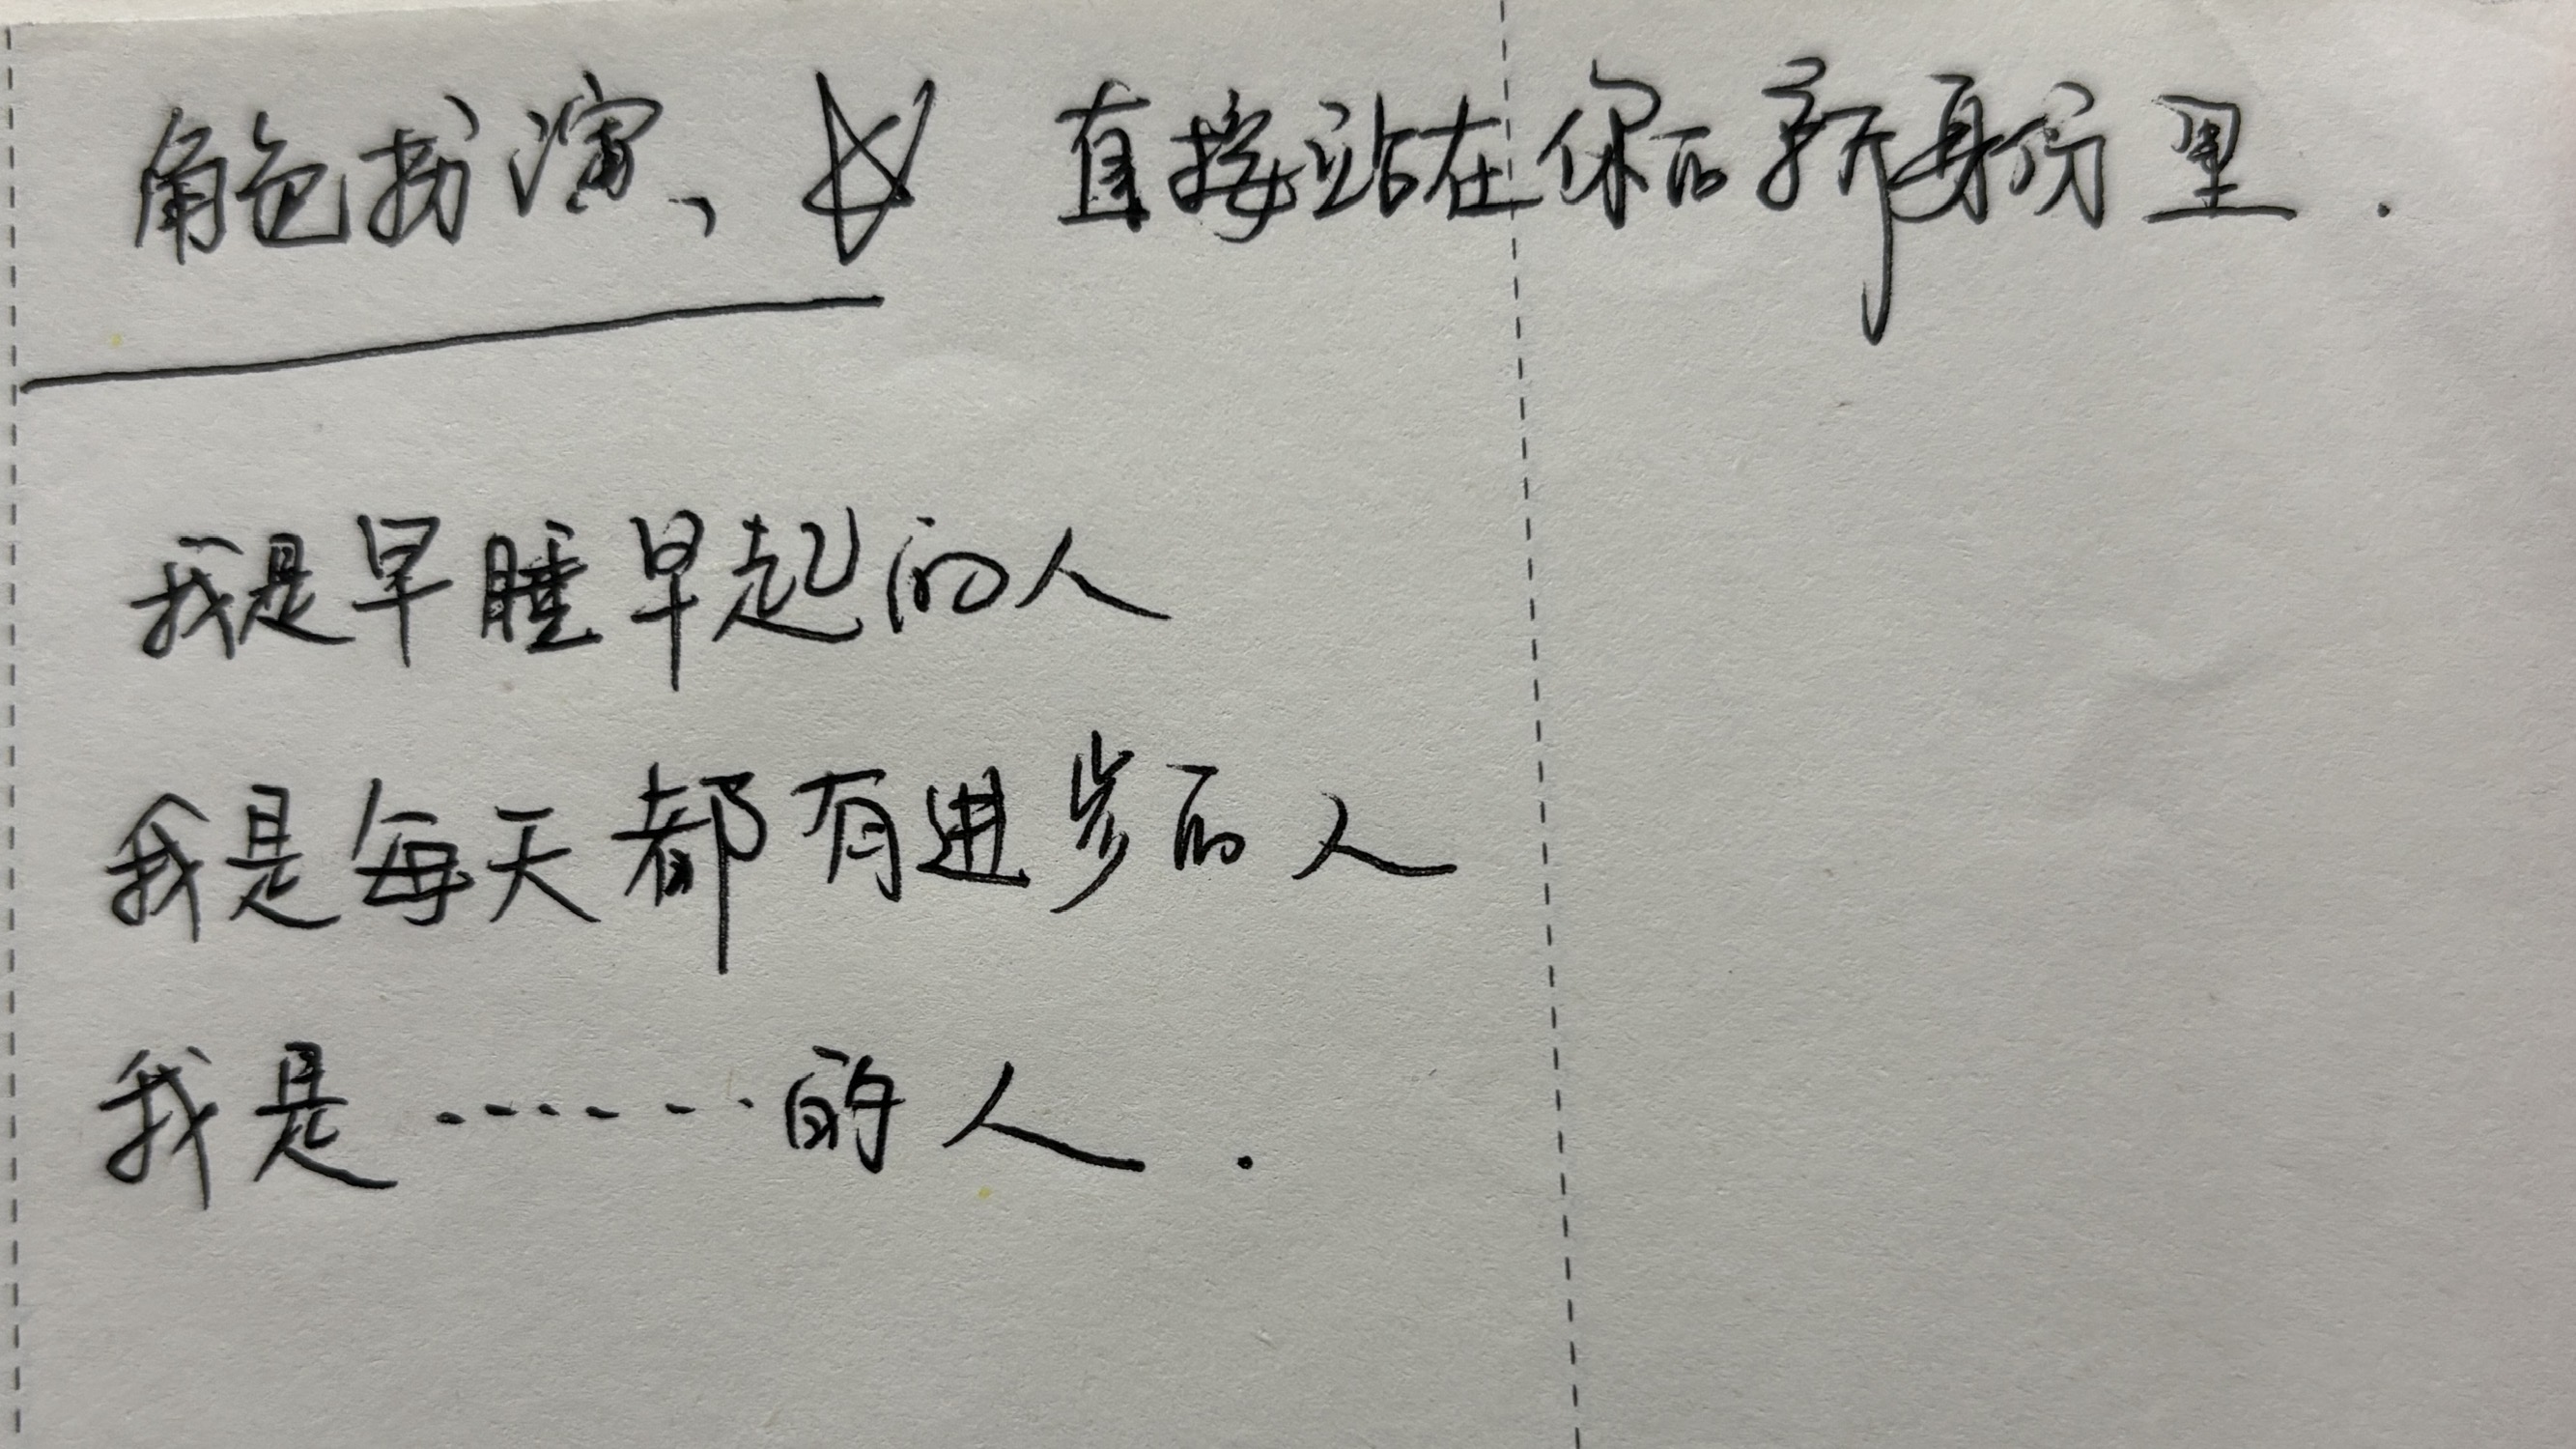 角色扮演、 直接站在你的新身份里.
我是早睡早起的人
我是每天都有进步的人
我是……的人.